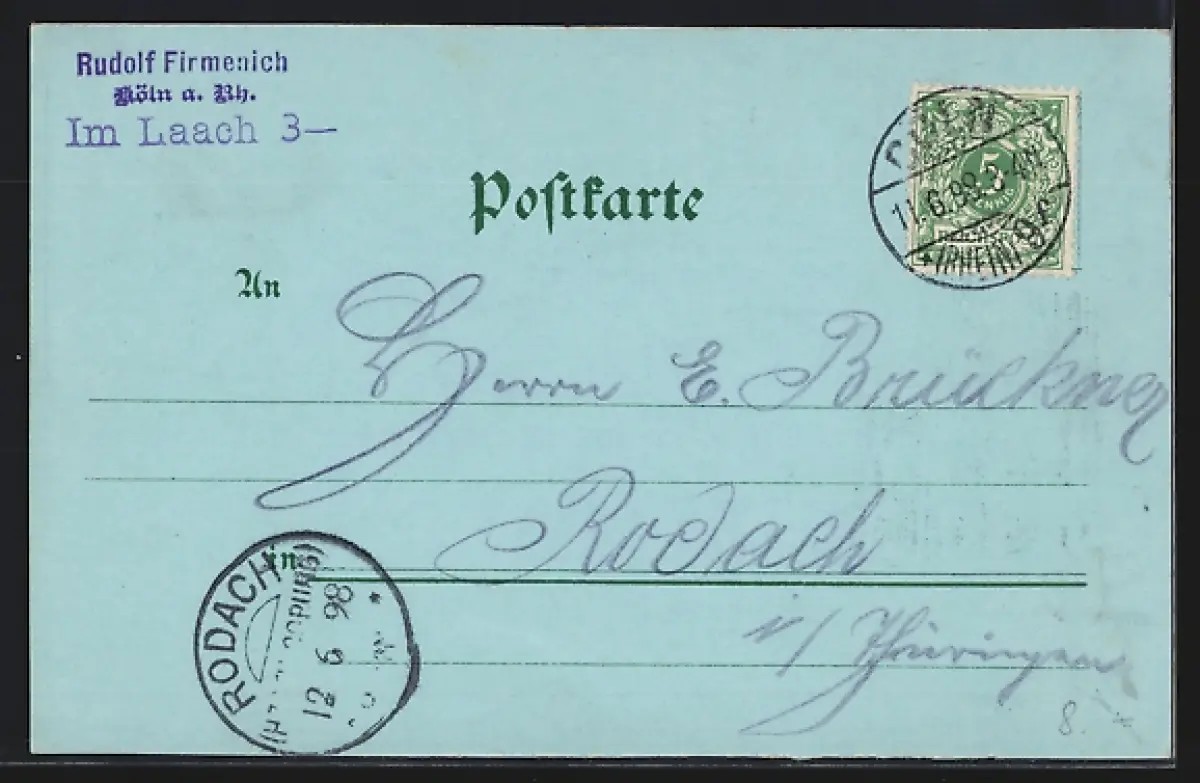 Rudolf Firmenich
Köln a. Rh.
Im Laach 3—
Postkarte
11.6.98.3-4N.
(RHEIN) 9f
5
PFENNIG
An
Herrn E. Brückner
in Rodach
i/ Thüringen
RODACH
12 6 98
8.